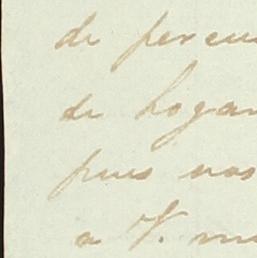 de percu
de hogar
pues nos
a V. mu